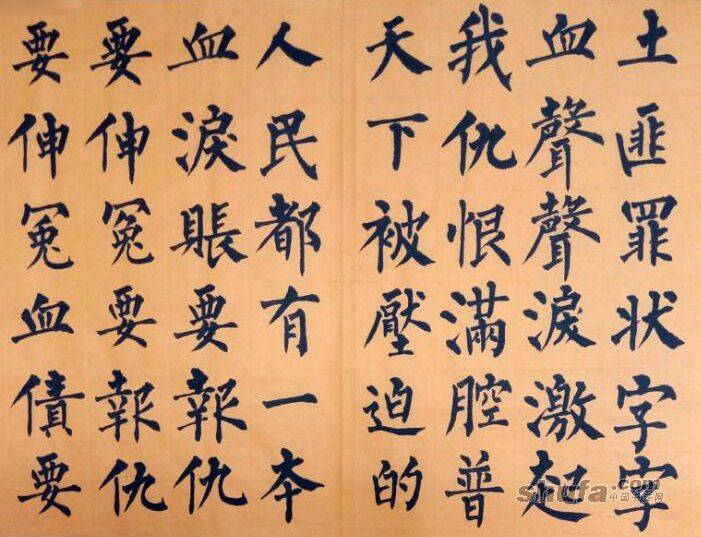 土匪罪状字字
血聲聲淚激起
我仇恨滿腔普
天下被壓迫的
人民都有一本
血淚賬要報仇
要伸冤要報仇
要伸冤血債要
shufa.com
中国书法网